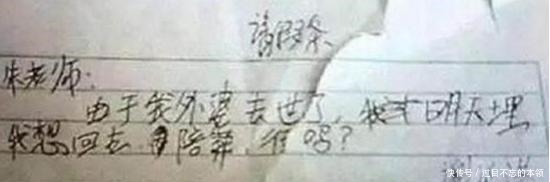 请假条
朱老师:
由于我外婆去世了,我才明天埋
我想回去陪葬,行吗?
快传号/过目不忘的本领